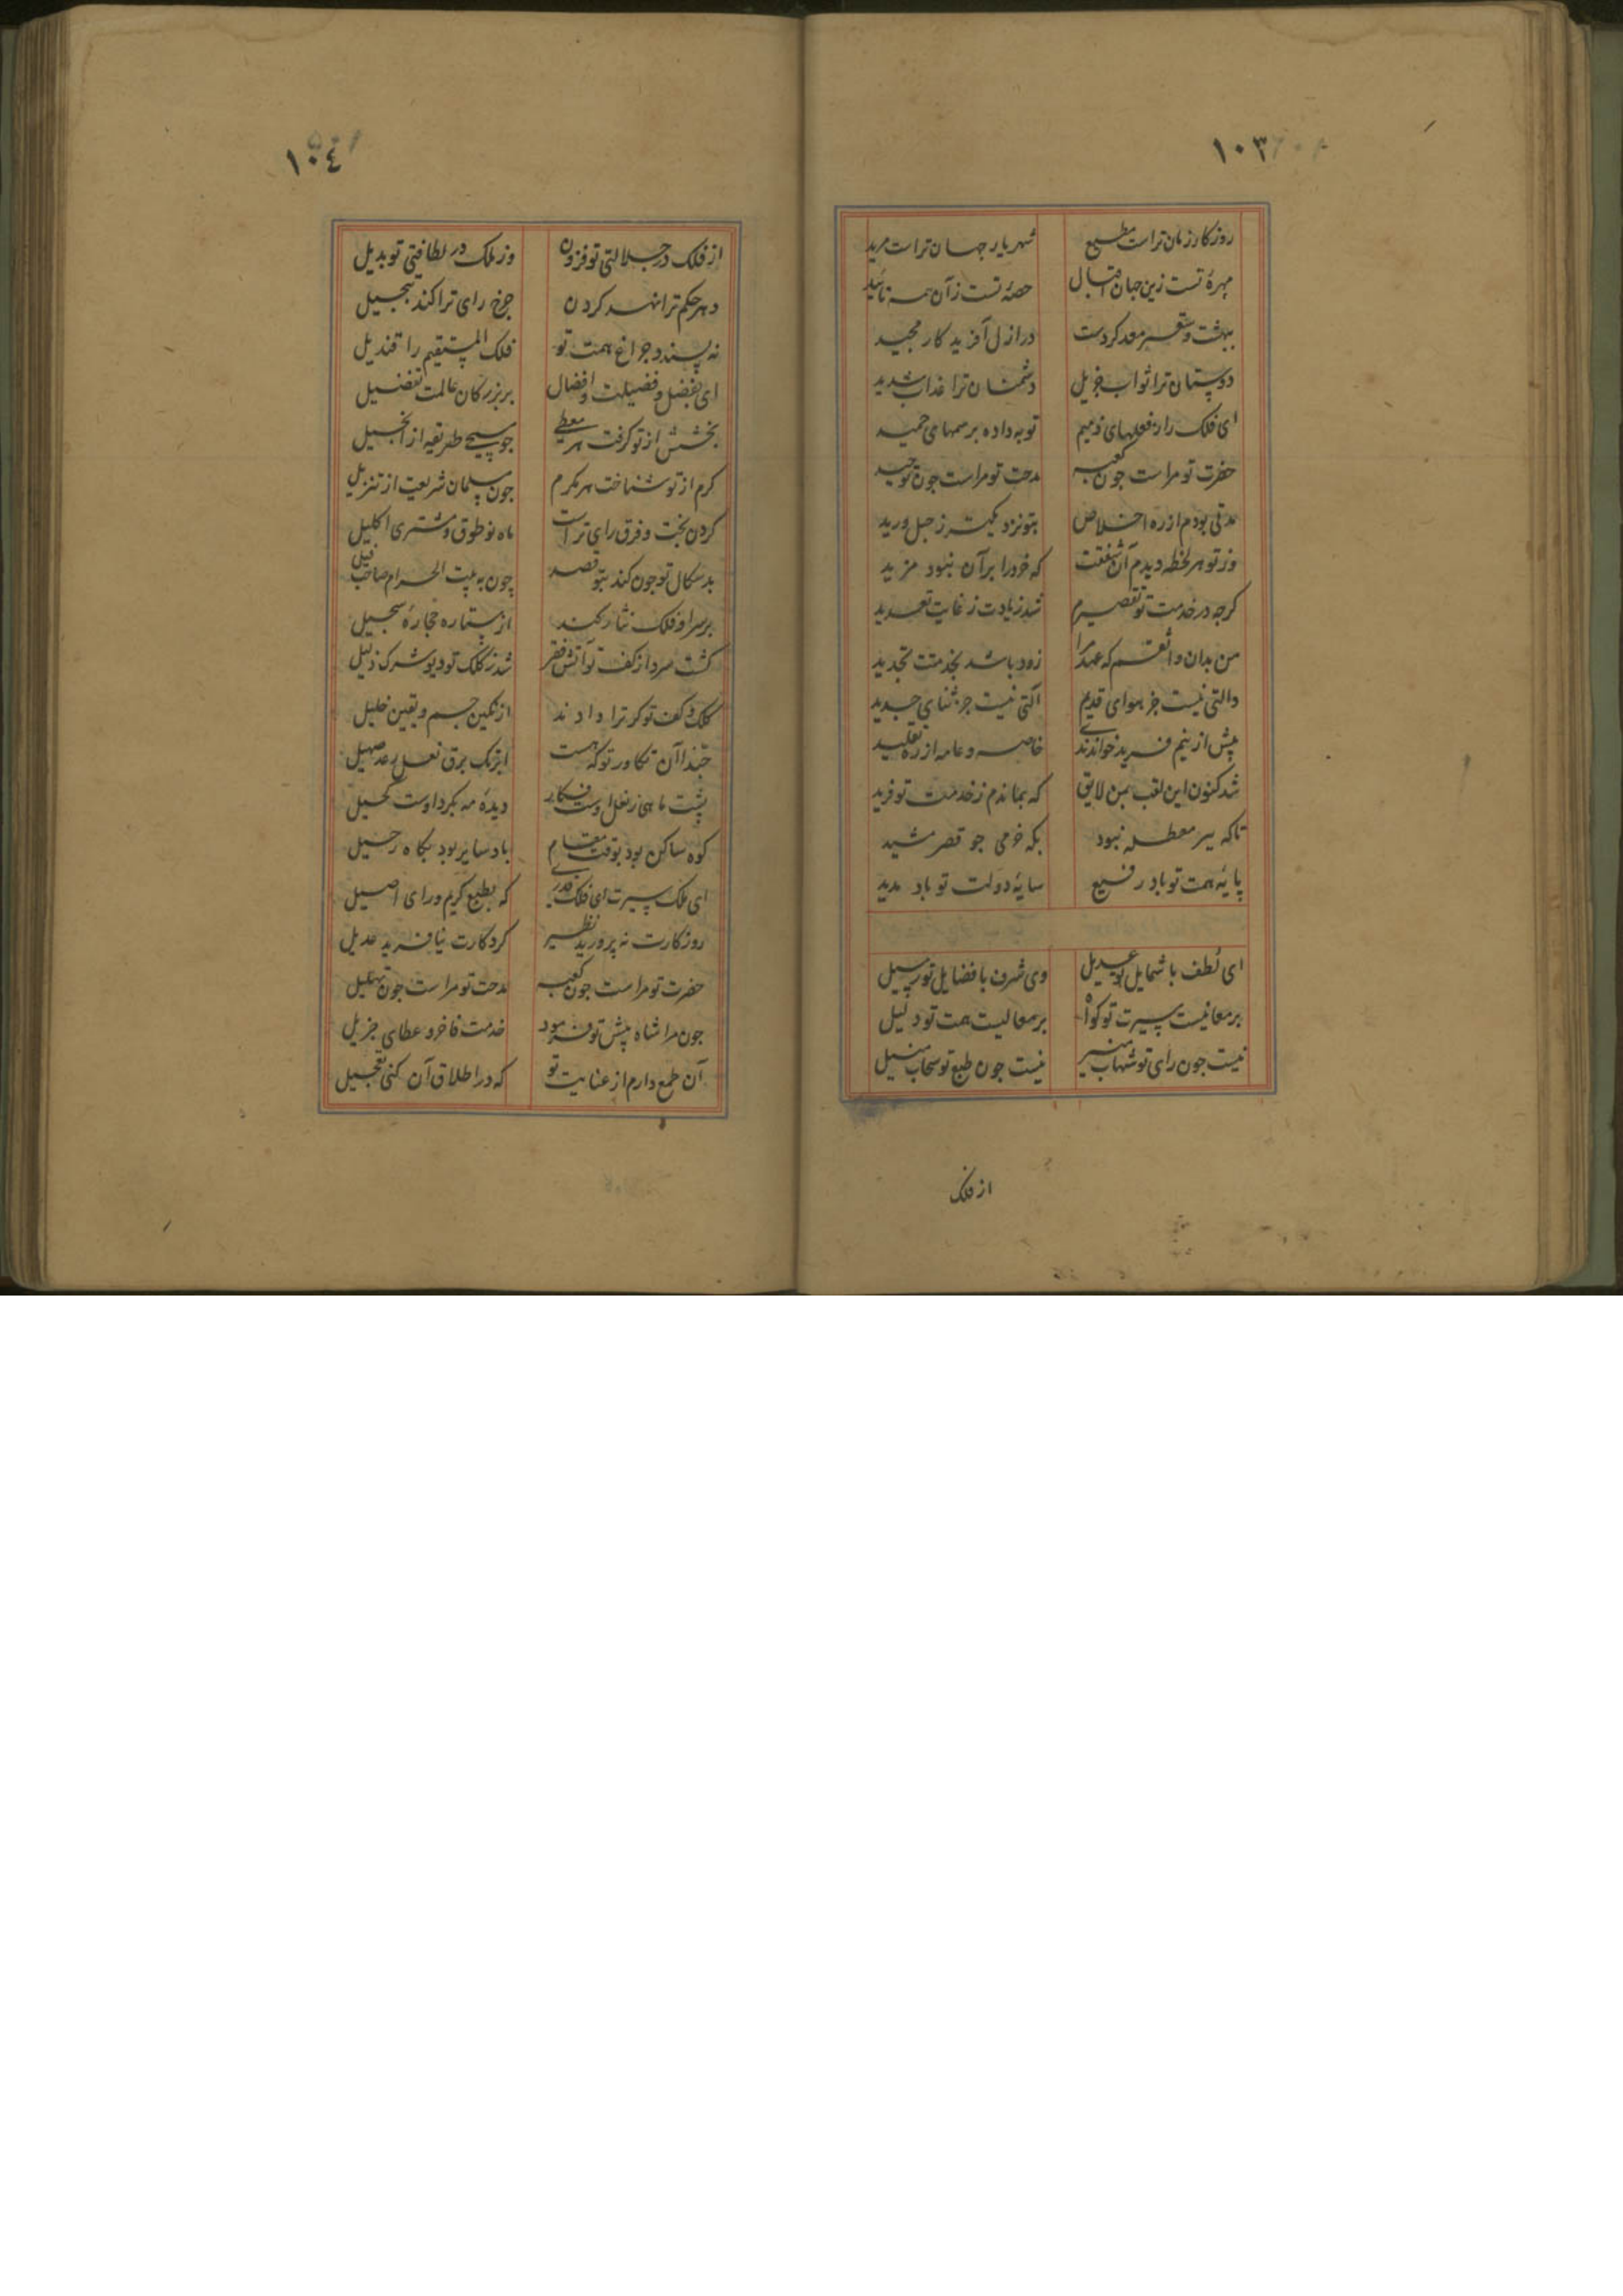 ١٠٣
روزکار زمان تراست مطیع شهریار جهان تراست مرید
بهرهٔ تست زین جهان اقبال حصهٔ تست زآن همه تائید
بهشت و سقر معد کردست در ازل آفریدکار مجید
دوستان ترا ثواب جزیل دشمنان ترا عذاب شدید
ای فلک را ز فعلهای ذمیم توبه داده برسمهای حمید
حضرت تو مراست جون کعبه مدحت تو مراست جون توحید
مدتی بودم از ره اخلاص بتو نزدیکتر ز حبل ورید
وز تو هر لحظه دیدم آن شفقت که خرد را برآن نبود مزید
کرجه در خدمت تو تقصیرم شد زیادت ز غایت تعدید
من بدان واثقم که عهد مرا زود باشد بخدمتت تجدید
دالتی نیست جز هوای قدیم آلتی نیست جز ثنای جدید
پیش ازینم فرید خواندندی خاصه و عامه از ره تقلید
شد کنون این لقب بمن لایق که بماندم ز خدمت تو فرید
تاکه بیر معطله نبود بکه خرمی جو قصر مشید
پایهٔ همت تو باد رفیع سایهٔ دولت تو باد مدید
ای لطف با شمایل تو عدیل وی شرف با فضایل تو رسیل
بر معانیست سیرت تو کواه بر معالیست همت تو دلیل
نیست جون رای تو شهاب منیر نیست جون طبع تو سحاب منیل
از فلک
١٠٤
از فلک در جلالتی تو فزون وز ملک در لطافتی تو بدیل
دهر حکم ترا نهد کردن جرخ رای ترا کند تبجیل
نه پسندد جراغ همت تو فلک المستقیم را قندیل
ای بفضل و فضیلت و افضال بر بزرکان عالمت تفضیل
بخشش از تو کرفت هر معطی جو مسیحی طریقه از انجیل
کرم از تو شناخت هر مکرم جون مسلمان شریعت از تنزیل
کردن بخت و فرق رای تراست ماه نو طوق و مشتری اکلیل
بدسکال تو جون کند بتو قصد چون به بیت الحرام صاحب فیل
بر سر او فلک نثار کند از ستاره حجارهٔ سجیل
کشت سرد از کف تو آتش فقر شد ز کلک تو دیو شرک ذلیل
کلک و کف تو کر ترا دادند از نکین جم و یقین خلیل
حبذا آن تکاور تو که هست ابر تک برق نعل رعد صهیل
پشت ماهی ز نعل اوست فکار دیدهٔ مه بکرد اوست کحیل
کوه ساکن بود بوقت مقام باد سایر بود بکاه رحیل
ای ملک سیرت ای فلک قدری که بطبع کریم و رای اصیل
روزکارت نه پرورید نظیر کردکارت نیافرید عدیل
حضرت تو مراست جون کعبه مدحت تو مراست جون تهلیل
جون مرا شاه پیش تو فرمود خدمت فاخر و عطای جزیل
آن طمع دارم از عنایت تو که در اطلاق آن کنی تعجیل